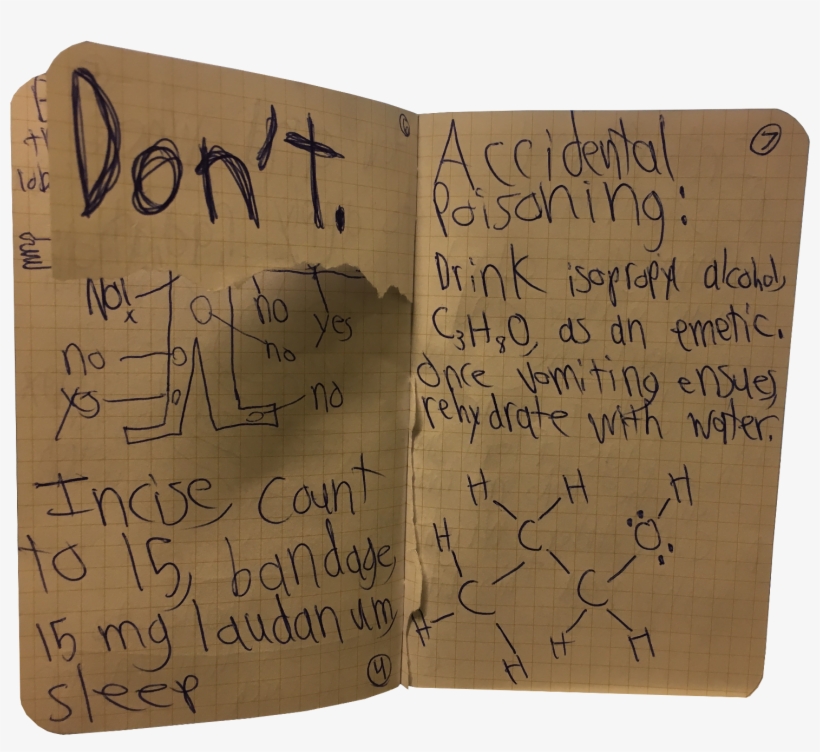 Don't.
6
No!
x
no
yes
no
no
yes
no
Incise, count
to 15, bandage,
15 mg laudanum,
sleep
4
7
Accidental
Poisoning:
Drink isopropyl alcohol,
C₃H₈O, as an emetic.
Once vomiting ensues,
rehydrate with water.
H H H
H C O
C C
H H H
H